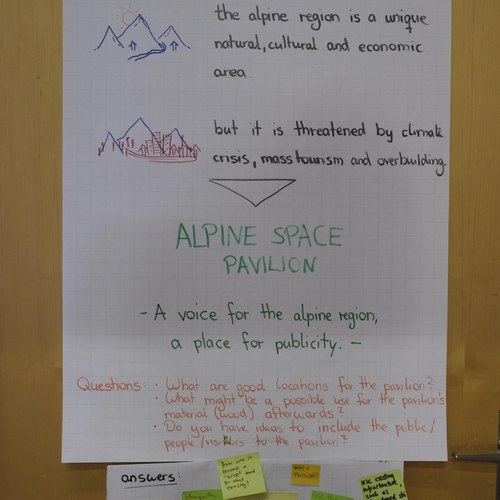 the alpine region is a unique
natural, cultural and economic
area
but it is threatened by climate
crisis, mass tourism and overbuilding.
ALPINE SPACE
PAVILION
- A voice for the alpine region,
a place for publicity. -
Questions: • What are good locations for the pavilion?
• What might be a possible use for the pavilion's
material (wood) afterwards?
• Do you have ideas to include the public/
people/visitors to the pavilion?
answers:
use existing
infrastructure,
such as